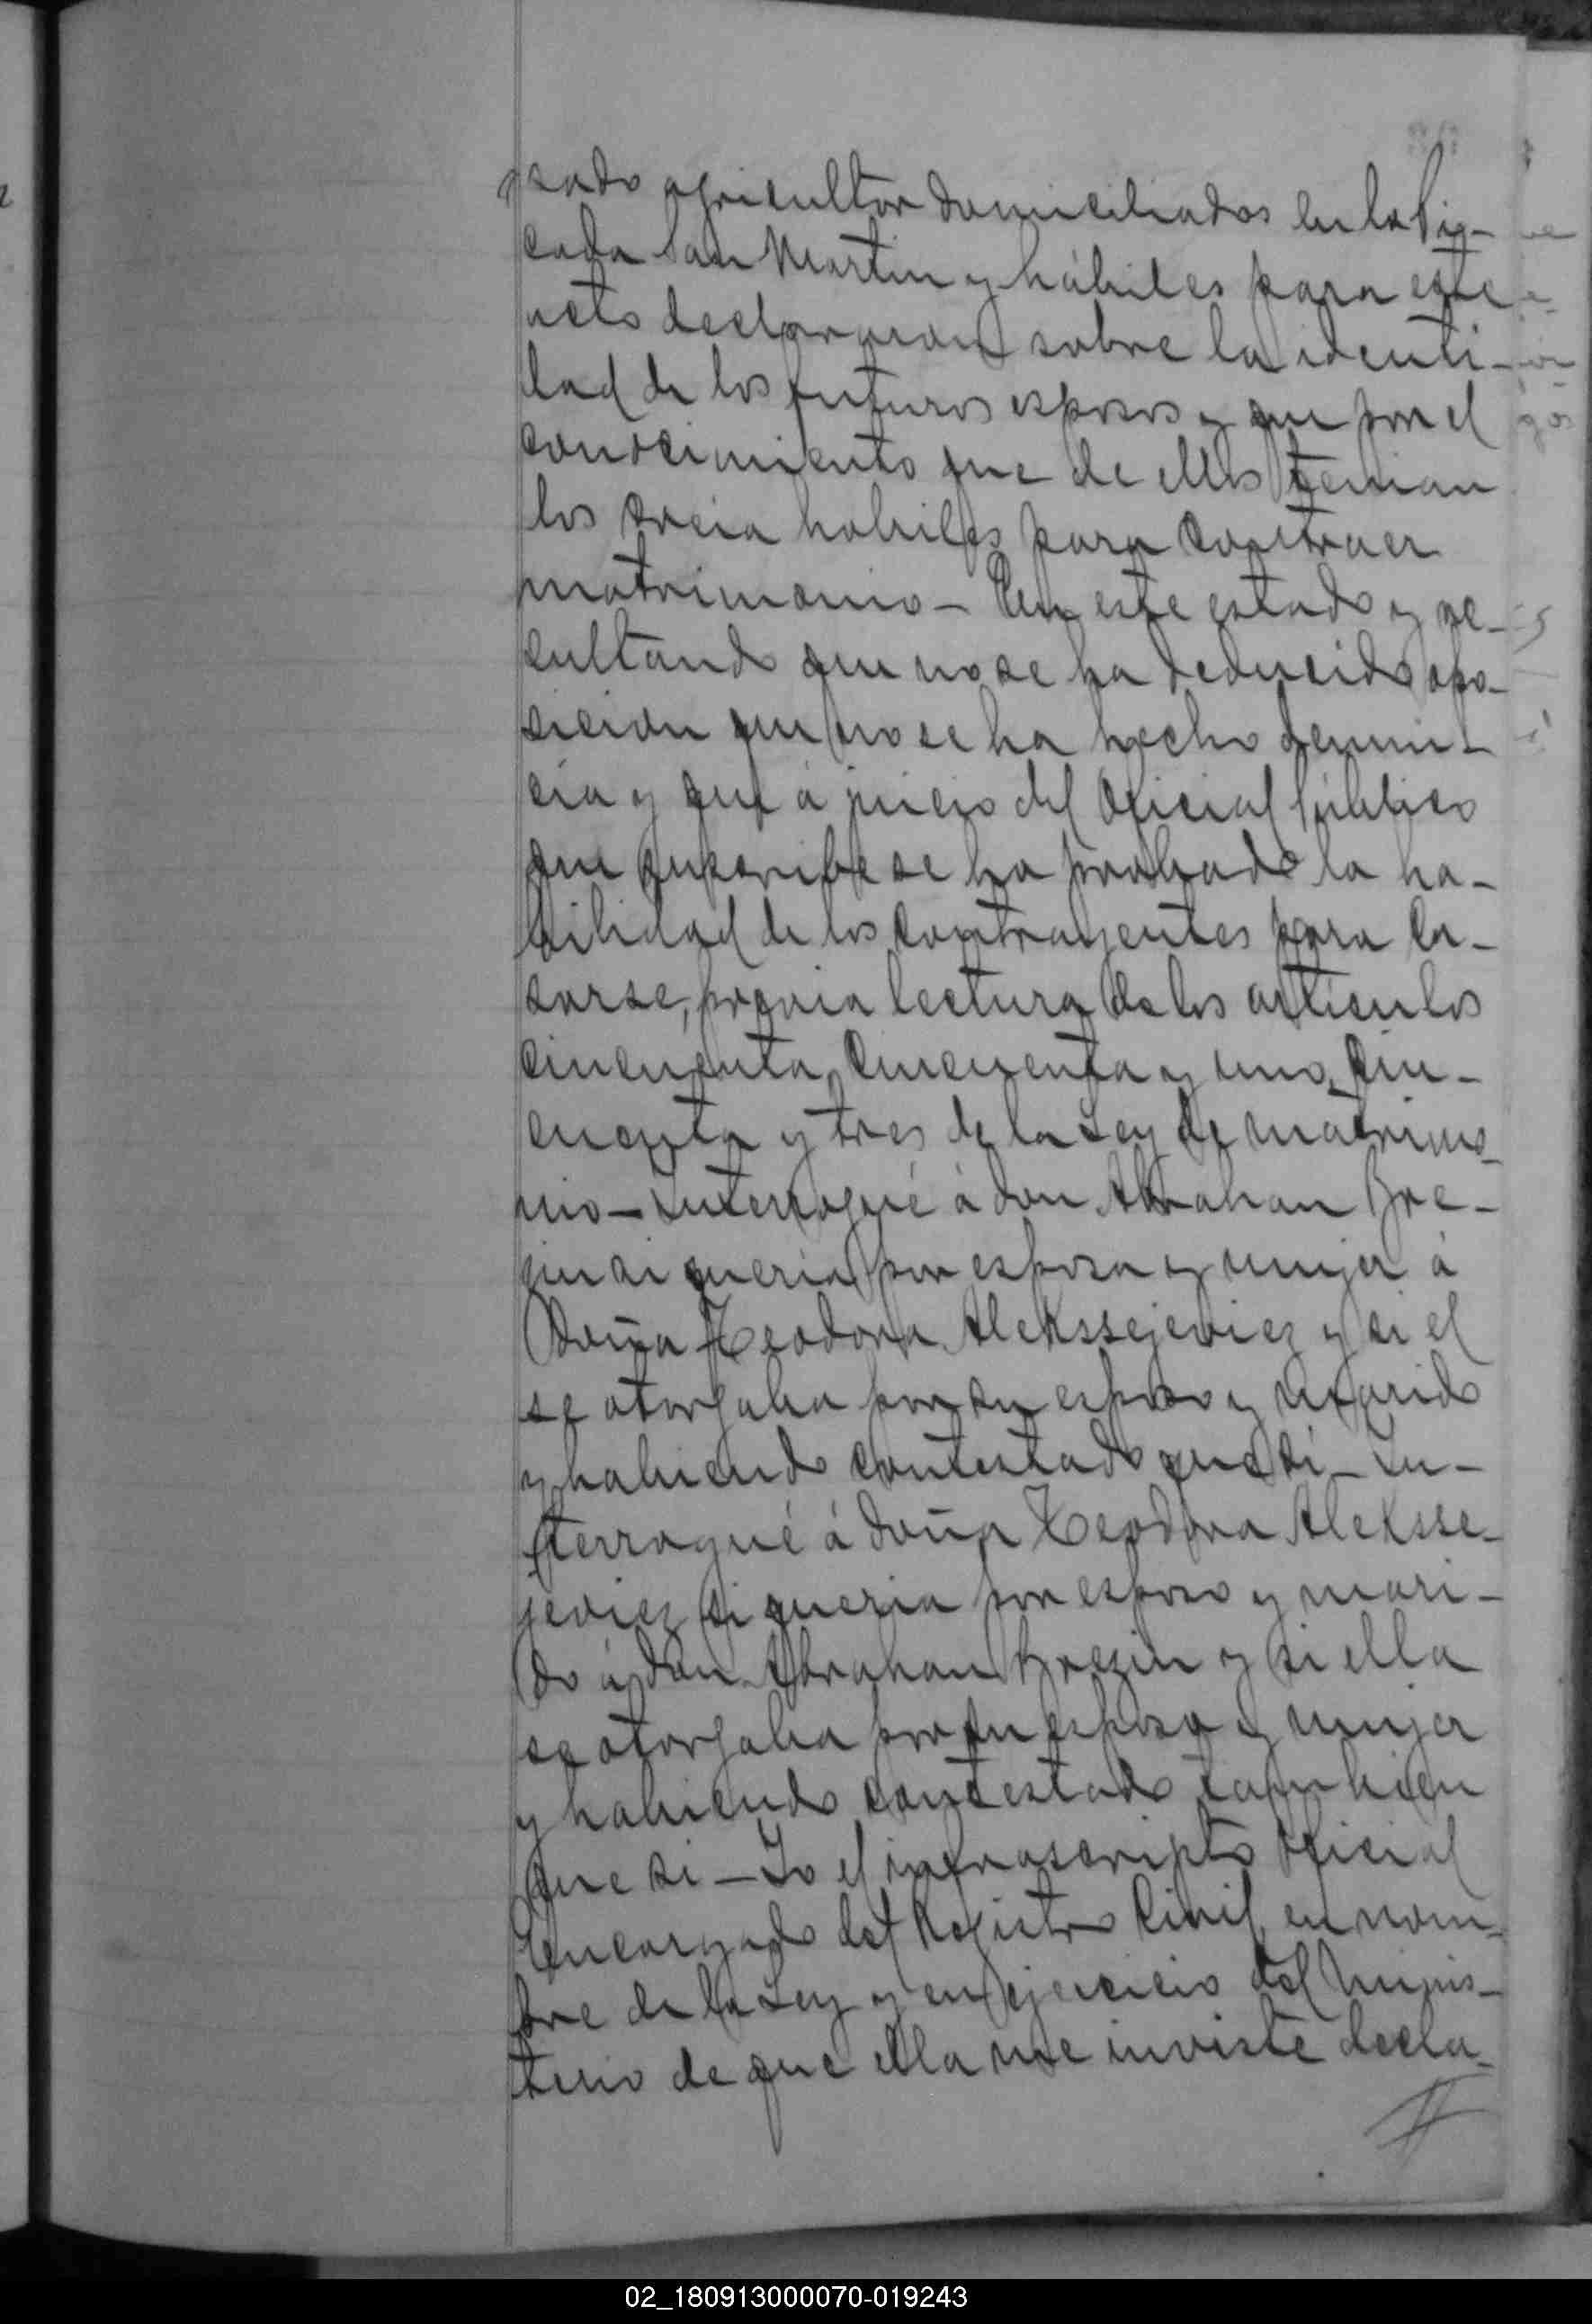 sado agricultor domiciliados en la Pi-
cada San Martin y hábiles para este
acto declararon sobre la identi-
dad de los futuros esposos y que por el
conocimiento que de ellos tenian
los creia habiles para contraer
matrimonio - En este estado y re-
sultando que no se ha deducido opo-
sicion que no se ha hecho denun-
cia y que á juicio del Oficial Público
que suscribe se ha probado la ha-
bilidad de los contrayentes para ca-
sarse, previa lectura de los articulos
cincuenta, cincuenta y uno, cin-
cuenta y tres de la Ley de matrimo-
nio - Interrogué á don Abrahan Bre-
zin si queria por esposa y mujer á
doña Teodora Alekssejeviez y si el
se otorgaba por su esposo y marido
y habiendo contestado que si - In-
terrogué á doña Teodora Alekse-
jeviez si queria por esposo y mari-
do á don Abrahan Brezin y si ella
se otorgaba por su esposa y mujer
y habiendo contestado tambien
que si - Yo el infrascripto Oficial
Encargado del Registro Civil, en nom-
bre de la Ley y en ejercicio del minis-
terio de que ella me inviste decla-
02_180913000070-019243